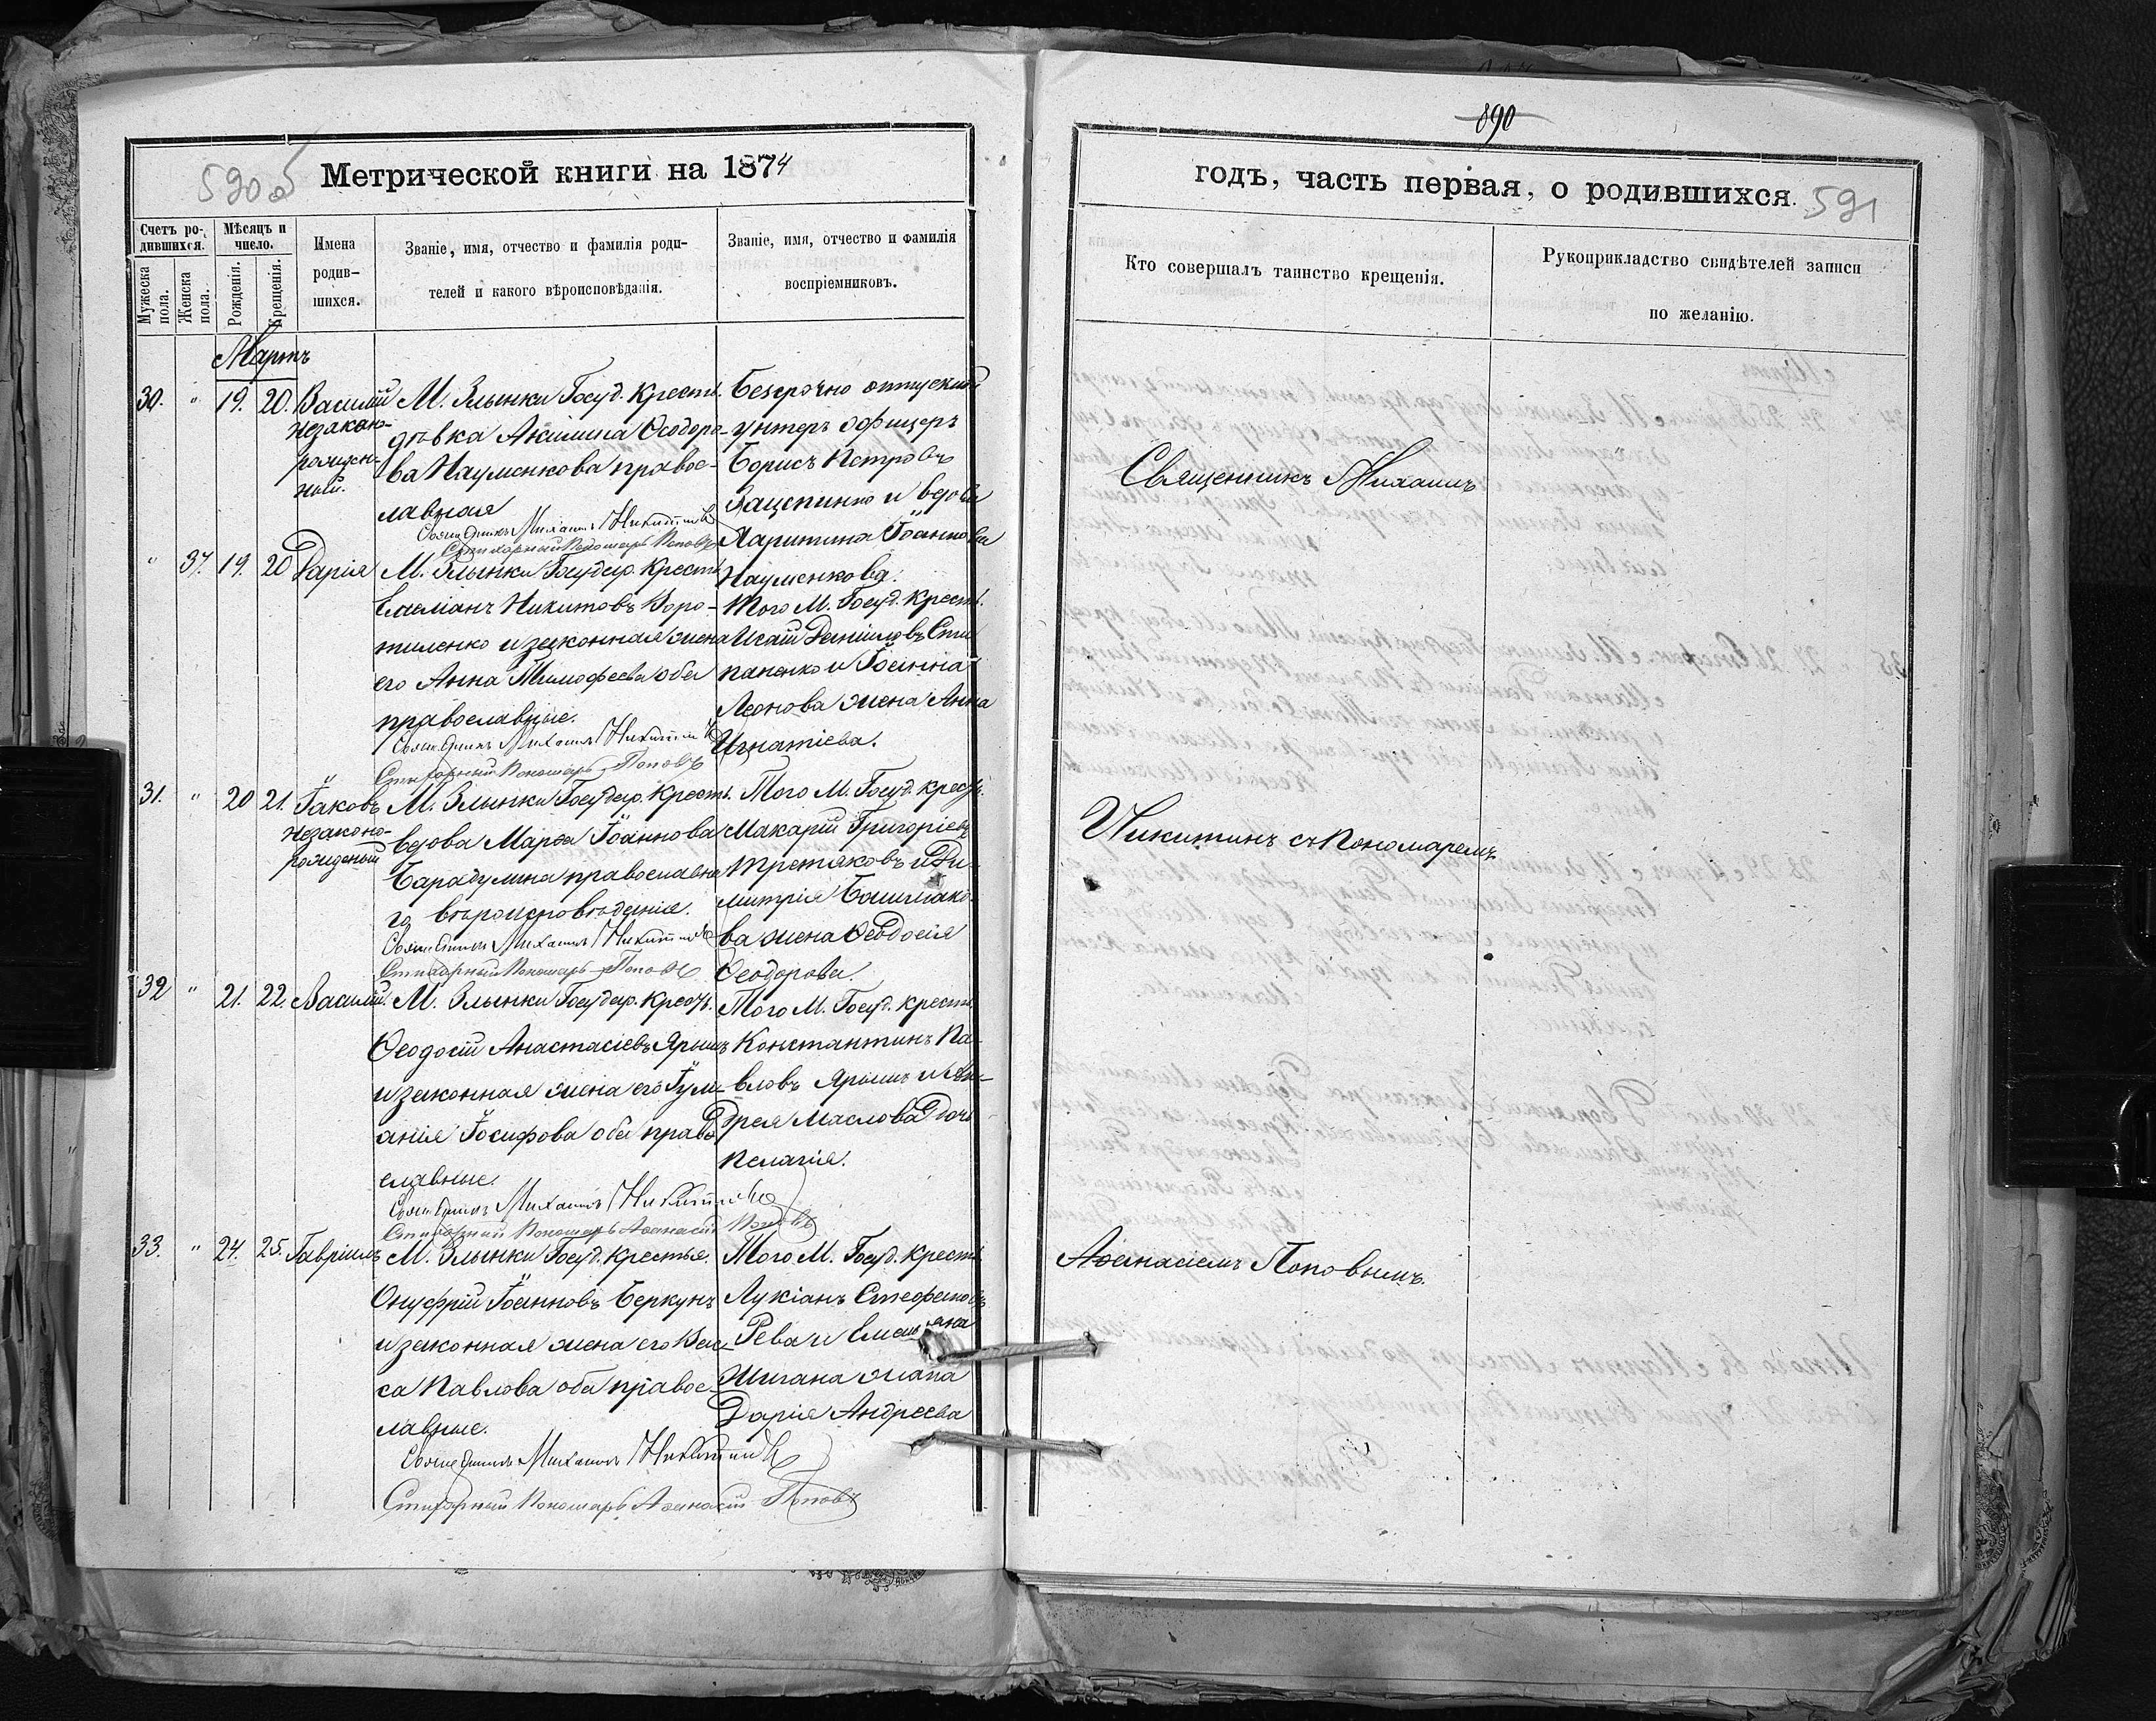 590 об
Метрической книги на 1874
Счетъ ро-
дившихся.
Мѣсяцъ и
число.
Мужеска
пола.
Женска
пола.
Рожденія.
Крещенія.
Имена
родив-
шихся.
Званіе, имя, отчество и фамилія роди-
телей и какого вѣроисповѣданія.
Званіе, имя, отчество и фамилія
воспріемниковъ.
Мартъ
30. " 19. 20. Василій
незакон-
рожден-
ный.
М. Злынки Госуд. Крестъ.
дѣвка Акилина Ѳеодоро-
ва Науменкова правос-
лавная
Священникъ Михаилъ Никитинъ
Стихарный Пономарь Поповъ
Безсрочно отпускной
унтеръ офицеръ
Борисъ Петровъ
Зацепинко и вдова
Харитина Іоаннова
Науменкова.
" 37. 19. 20 Дарія
М. Злынки Государ. Крестъ.
Емеліанъ Никитовъ Воро-
тиленко и законная жена
его Анна Тимофеева оба
православные.
Священникъ Михаилъ Никитинъ
Стихарный Пономарь Поповъ
Того М. Госуд. Крестъ.
Исаій Даніиловъ Сте
паненко и Іоанна
Леонова жена Анна
Игнатіева.
31. " 20 21. Іаковъ
незаконо-
рожденый
М. Злынки Государ. Крестъ.
вдова Марѳа Іоаннова
Барадулина православна
го вѣроисповѣданія.
Священникъ Михаилъ Никитинъ
Стихарный Пономарь Поповъ
Того М. Госуд. Крестъ.
Макарій Григоріевъ
Третяковъ и Ди-
митрія Башмако-
ва жена Ѳеодосія
Ѳеодорова
32 " 21. 22. Василій.
М. Злынки Государ. Крестъ.
Ѳеодосій Анастасіевъ Ярышъ
и законная жена его Іули-
анія Іосифова оба право
славные.
Священникъ Михаилъ Никитинъ
Стихарный Пономарь Аѳанасій Поповъ
Того М. Госуд. Крестъ.
Константинъ Па-
вловъ Ярышъ и Ан-
дрея Маслова дочь
Пелагія.
33. " 24. 25. Гавріилъ
М. Злынки Госуд. Крестья.
Онуфрій Іоанновъ Беркунъ
и законная жена его Вас-
са Павлова оба правос-
лавные.
Священникъ Михаилъ Никитинъ
Стихарный Пономарь Аѳанасій Поповъ
Того М. Госуд. Крестъ.
Лукіанъ Стефановъ
Рева и Емельяна
жена
Дарія Андреева
890
годъ, часть первая, о родившихся.
591
Кто совершалъ таинство крещенія.
Рукоприкладство свидѣтелей записи
по желанію.
Священникъ Михаилъ
Никитинъ съ Пономаремъ
Аѳанасіемъ Поповымъ.